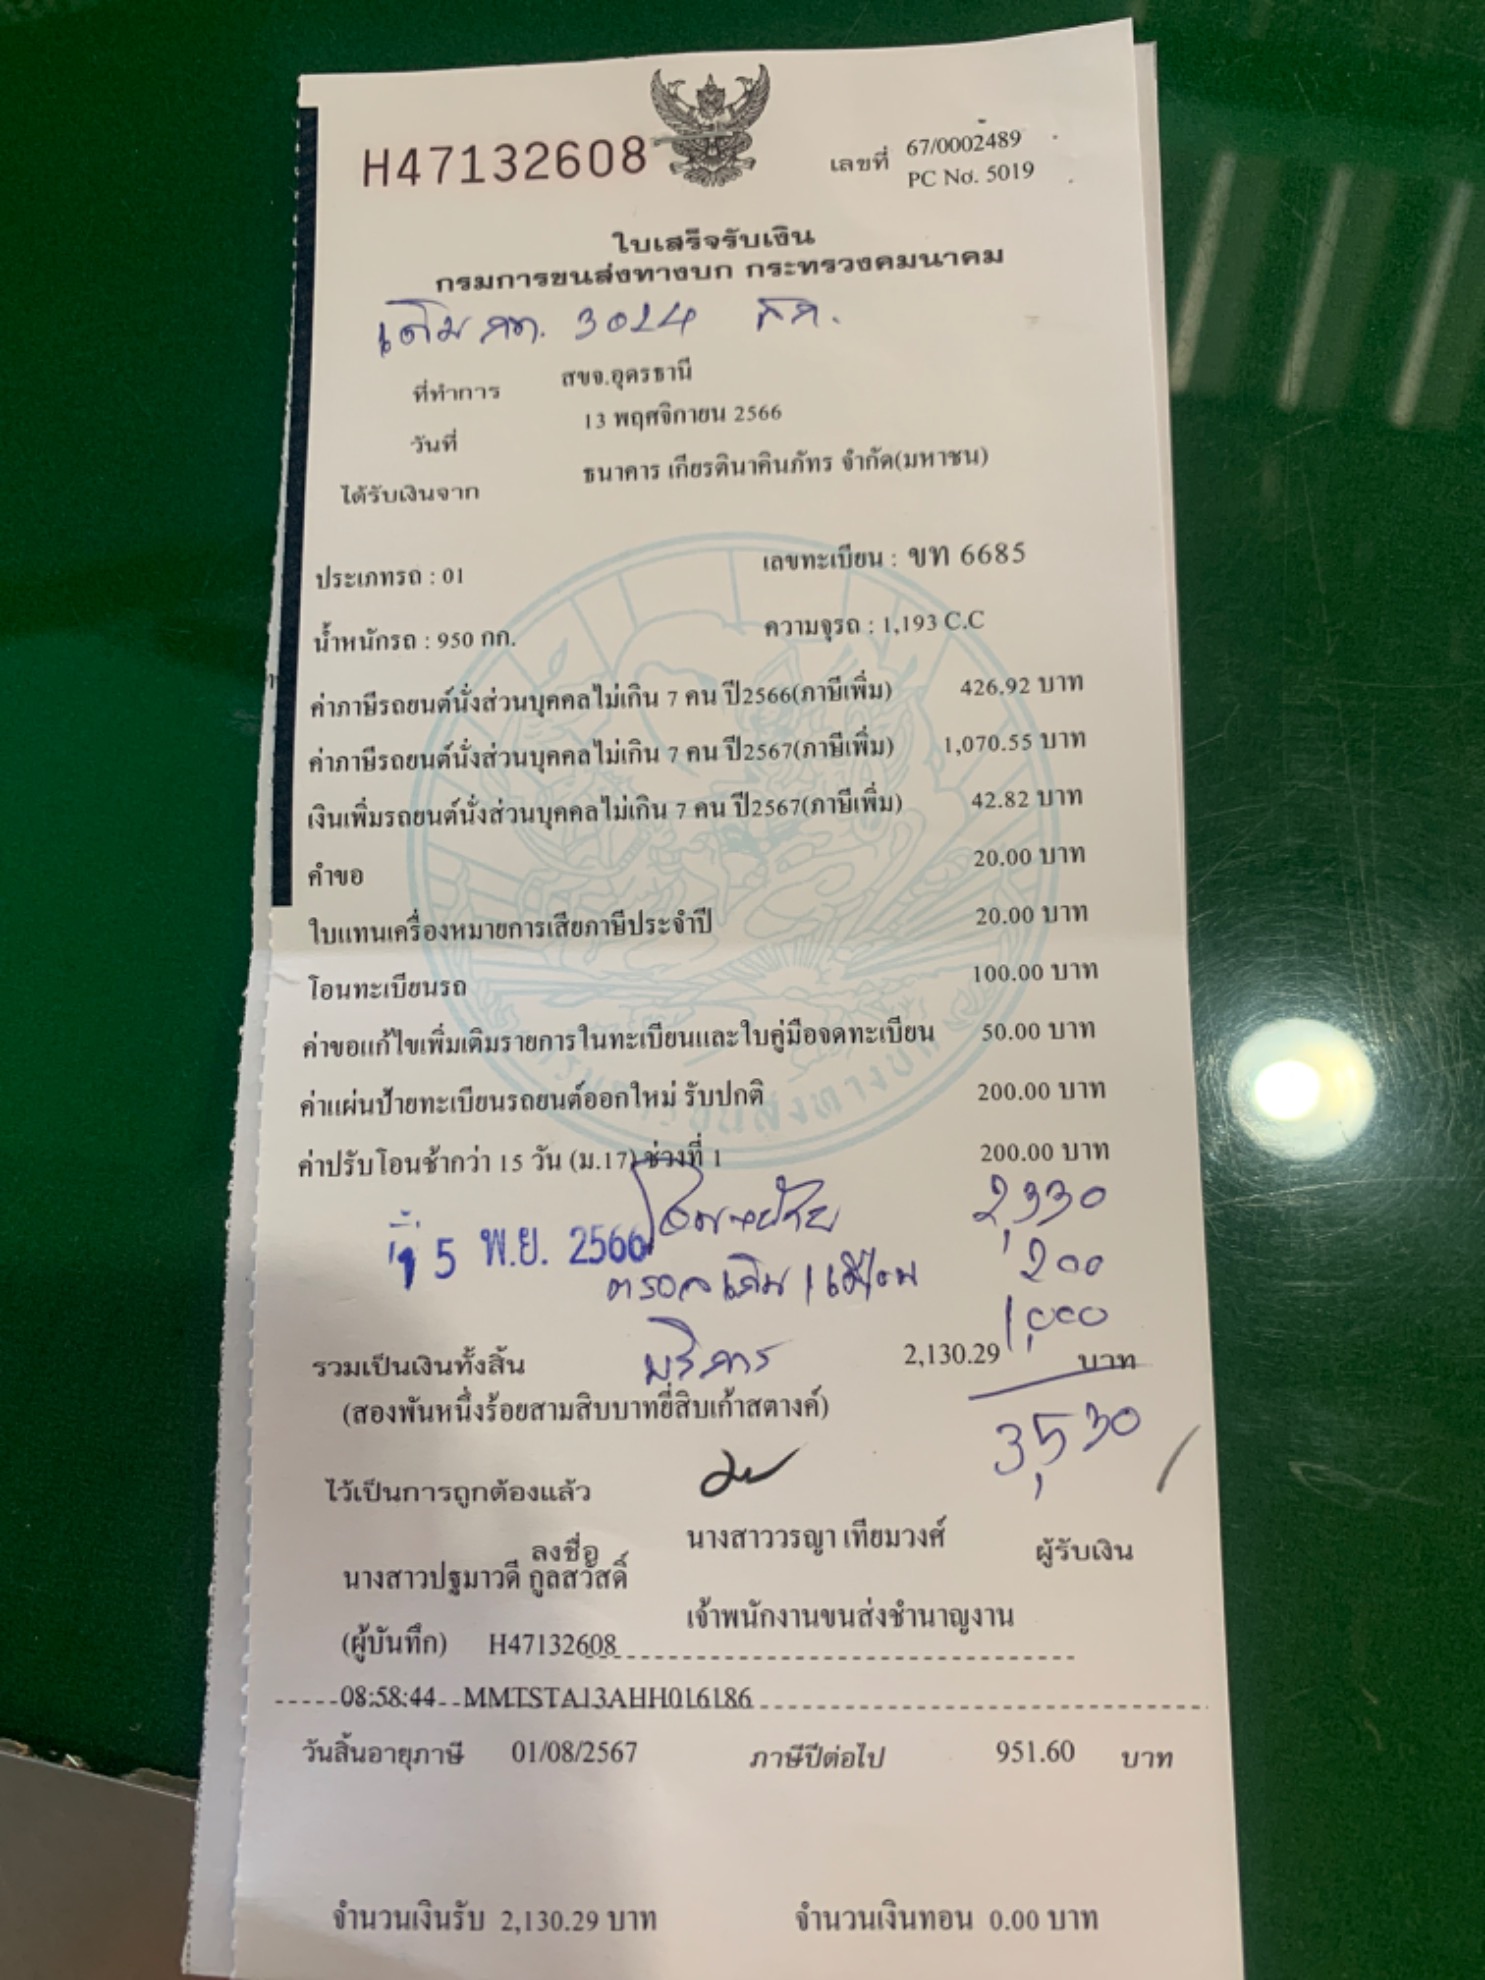 H47132608
เลขที่ 67/0002489
PC No. 5019
ใบเสร็จรับเงิน
กรมการขนส่งทางบก กระทรวงคมนาคม
เดิม กท. 3024
ที่ทำการ สขจ.อุดรธานี
วันที่ 13 พฤศจิกายน 2566
ได้รับเงินจาก ธนาคาร เกียรตินาคินภัทร จำกัด(มหาชน)
ประเภทรถ : 01 เลขทะเบียน : ขท 6685
น้ำหนักรถ : 950 กก. ความจุรถ : 1,193 C.C
ค่าภาษีรถยนต์นั่งส่วนบุคคลไม่เกิน 7 คน ปี2566(ภาษีเพิ่ม) 426.92 บาท
ค่าภาษีรถยนต์นั่งส่วนบุคคลไม่เกิน 7 คน ปี2567(ภาษีเพิ่ม) 1,070.55 บาท
เงินเพิ่มรถยนต์นั่งส่วนบุคคลไม่เกิน 7 คน ปี2567(ภาษีเพิ่ม) 42.82 บาท
คำขอ 20.00 บาท
ใบแทนเครื่องหมายการเสียภาษีประจำปี 20.00 บาท
โอนทะเบียนรถ 100.00 บาท
ค่าขอแก้ไขเพิ่มเติมรายการในทะเบียนและใบคู่มือจดทะเบียน 50.00 บาท
ค่าแผ่นป้ายทะเบียนรถยนต์ออกใหม่ รับปกติ 200.00 บาท
ค่าปรับโอนช้ากว่า 15 วัน (ม.17) ช่วงที่ 1 200.00 บาท
2,330
5 พ.ย. 2566
200
บริการ 1,000
รวมเป็นเงินทั้งสิ้น 2,130.29 บาท
(สองพันหนึ่งร้อยสามสิบบาทยี่สิบเก้าสตางค์)
3,530
ไว้เป็นการถูกต้องแล้ว
ลงชื่อ นางสาววรญา เทียมวงศ์ ผู้รับเงิน
นางสาวปฐมาวดี กูลสวัสดิ์
เจ้าพนักงานขนส่งชำนาญงาน
(ผู้บันทึก) H47132608
08:58:44 MMTSTA13AHH016186
วันสิ้นอายุภาษี 01/08/2567 ภาษีปีต่อไป 951.60 บาท
จำนวนเงินรับ 2,130.29 บาท จำนวนเงินทอน 0.00 บาท